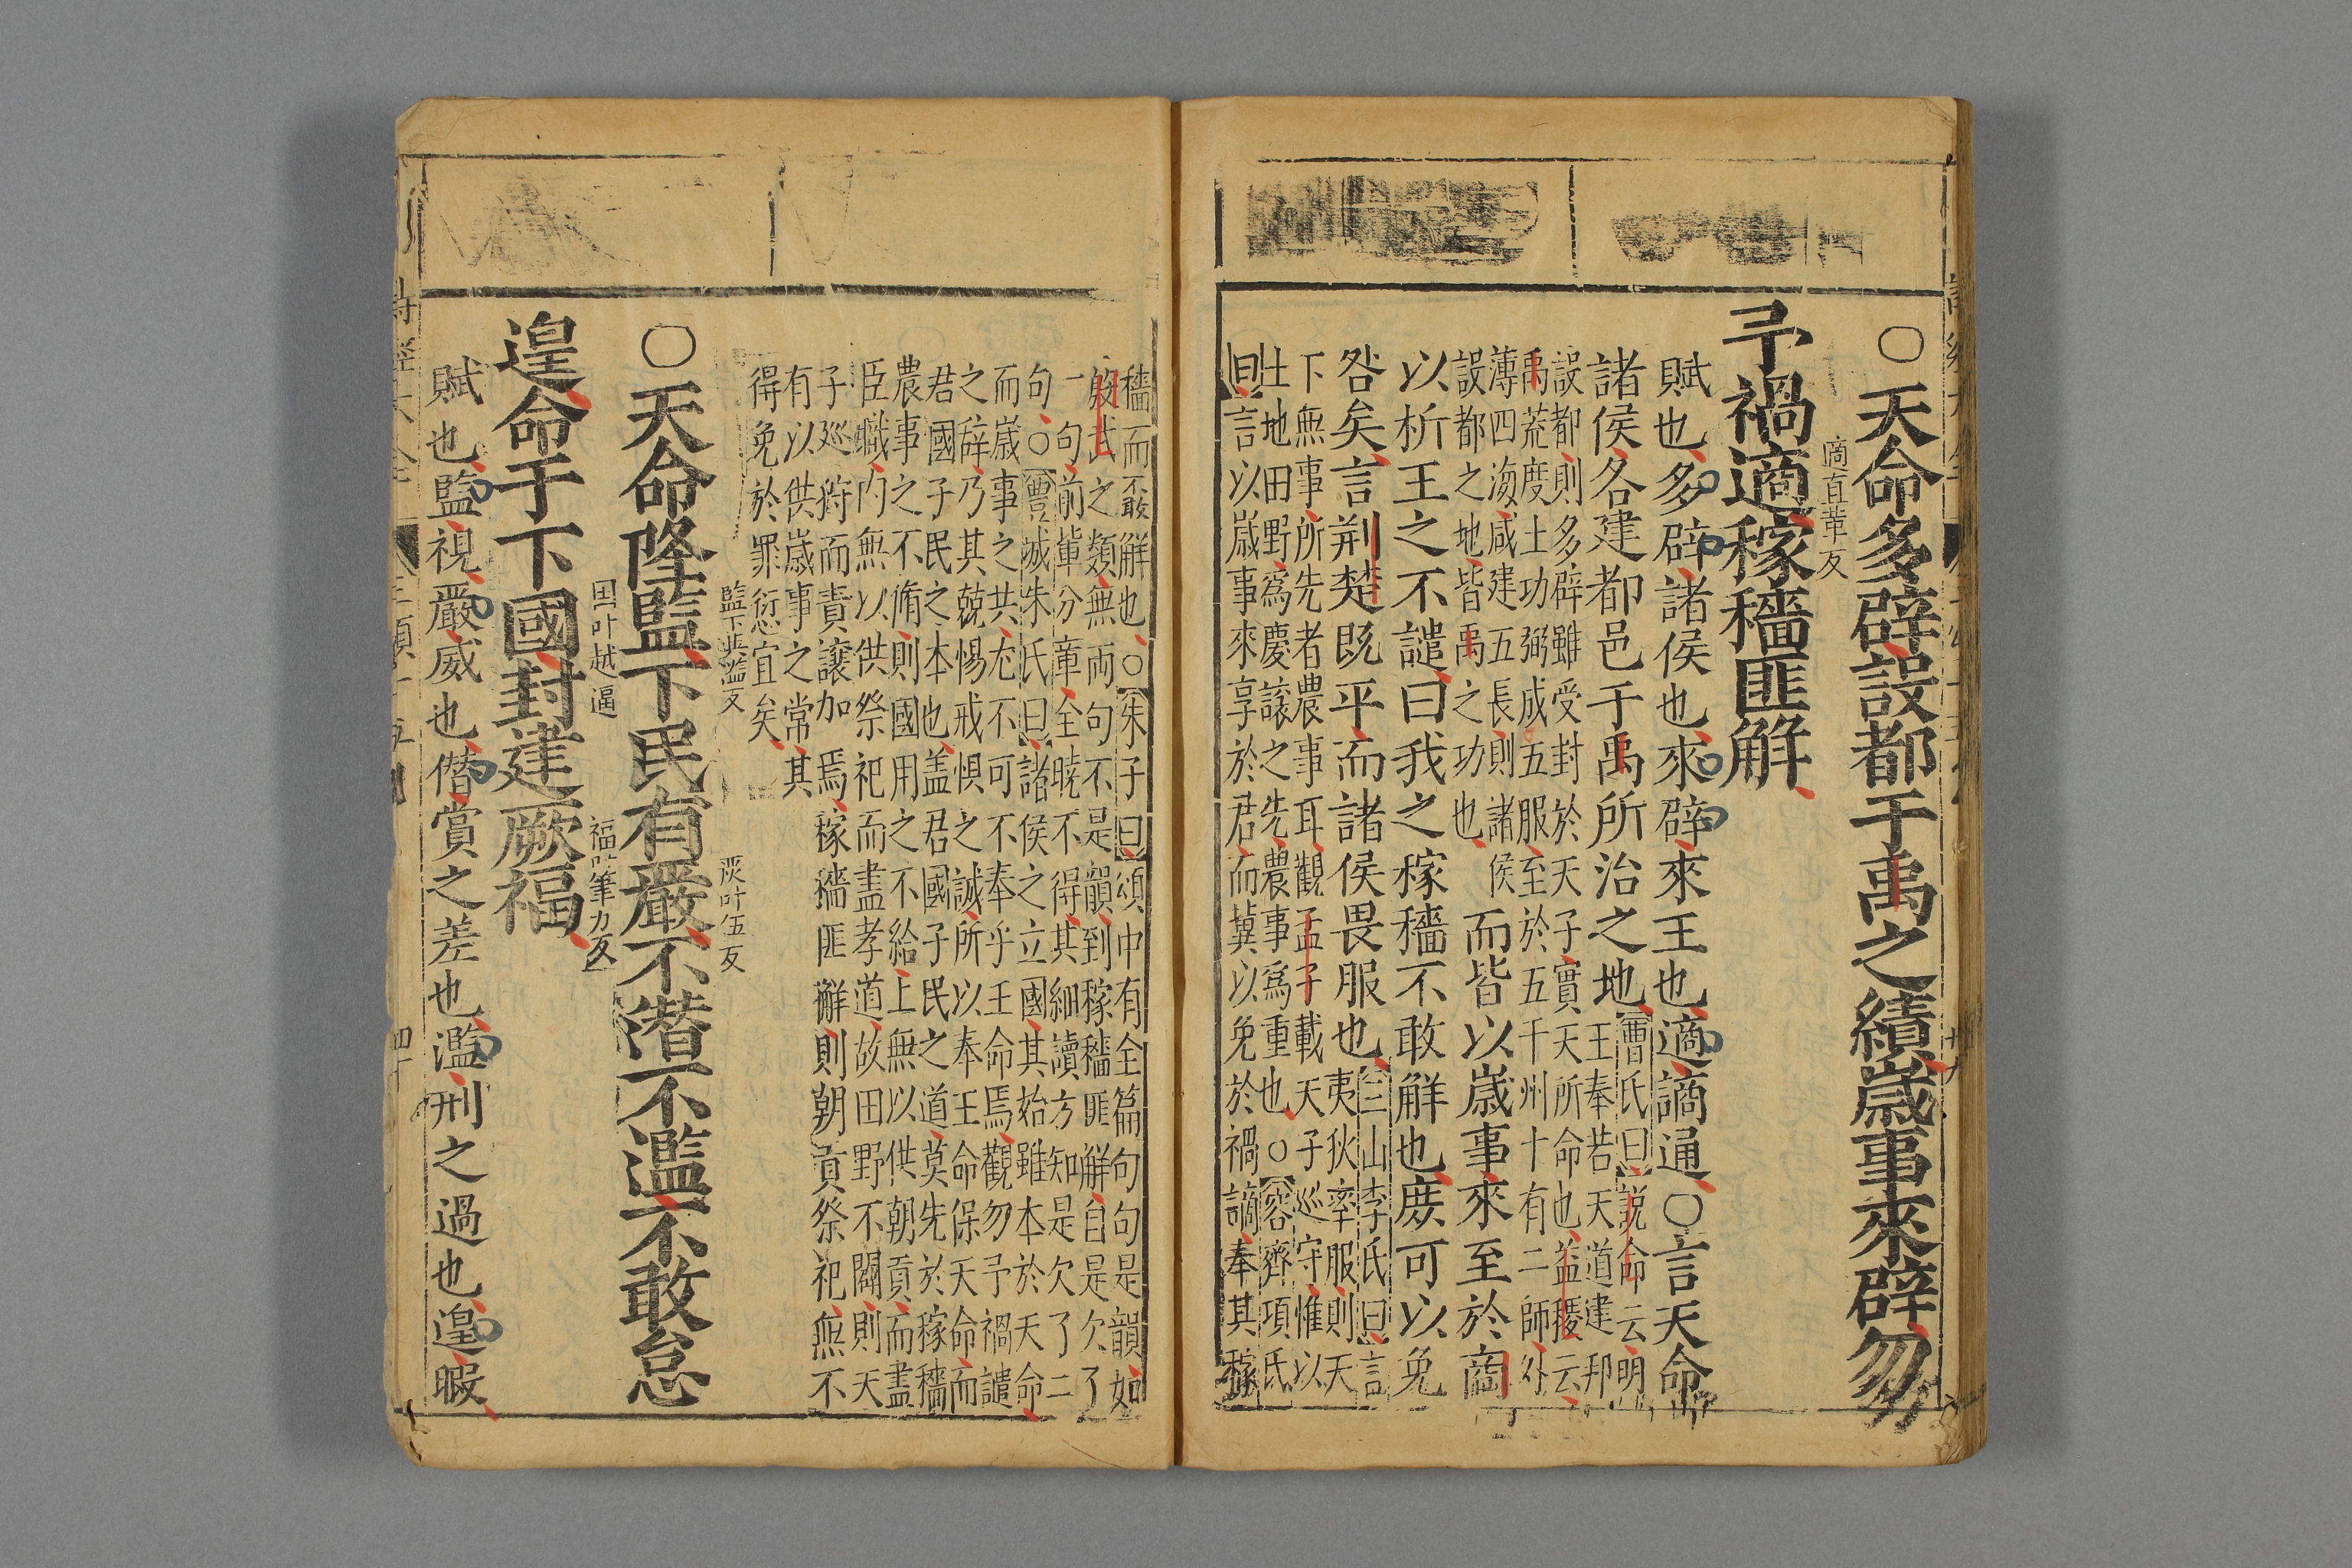 ○天命多辟設都于禹之績歲事來辟勿
適直革反
予禍適稼穡匪解
賦也多辟諸侯也來辟來王也適謫通○言天命
諸侯各建都邑于禹所治之地
曹氏曰說命云明
王奉若天道建邦
設都則多辟雖受封於天子實天所命也益稷云
禹荒度土功弼成五服至於五千州十有二師外
薄四海咸建五長則諸侯
設都之地皆禹之功也
而皆以歲事來至於商
以祈王之不譴曰我之稼穡不敢解也庶可以免
咎矣言荆楚既平而諸侯畏服也
三山李氏曰言
夷狄率服則天
下無事所先者農事耳觀孟子載天子巡守惟以
土地田野爲慶讓之先農事爲重也○容齊項氏
曰言以歲事來享於君而冀以免於禍謫奉其稼
穡而不敢解也○朱子曰頌中有全篇句句是韻如
殷武之類無兩句不是韻到稼穡匪解自是欠了
一句前軰分章全曉不得其細讀方知是欠了二
句○豐城朱氏曰諸侯之立國其始雖本於天命
而歲事之共尤不可不奉乎王命焉觀勿予禍譴
之辭乃其兢惕戒惧之誠所以奉王命保天命而
君國子民之本也盖君國子民之道莫先於稼穡
農事之不脩則國用之不給上無以供朝貢而盡
臣職内無以供祭祀而盡孝道故田野不闢則天
子巡狩而責讓加焉稼穡匪解則朝貢祭祀無不
有以供歲事之常其
得免於罪衍宜矣
監下與濫反
嚴叶伍反
○天命降監下民有嚴不僭不濫不敢怠
国叶越逼
福叶筆力反
遑命于下國封建厥福
賦也監視嚴威也僭賞之差也濫刑之過也遑暇